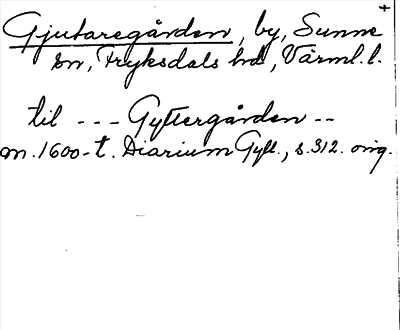 Gjutaregården, by, Sunne
sn, Fryksdals hd, Värml. l.
til --- Gyttergården --
m. 1600-t. Diarium Gyll., s. 312. orig.